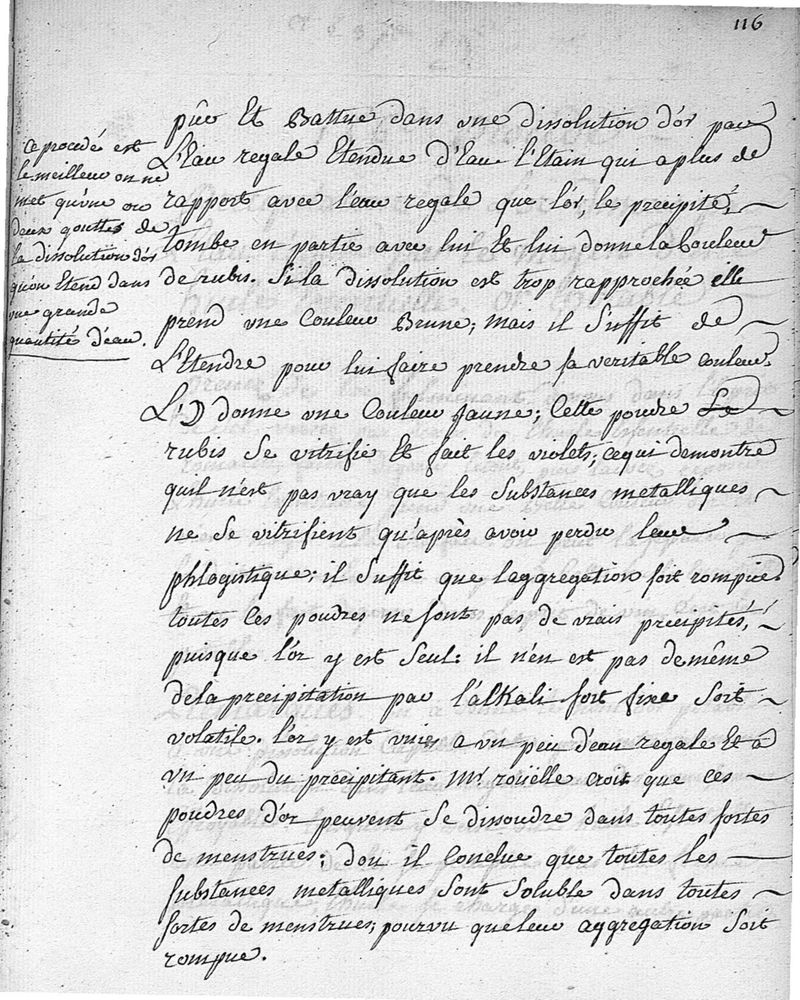 116
pure Et Battue dans une dissolution d'or par
L'Eau regale Etendue d'Eau L'Etain qui a plus de
rapport avec l'eau regale que l'or, le precipité,
tombe en partie avec lui Et lui donne la Couleur
de rubis. Si la dissolution est trop rapprochée elle
prend une Couleur Brune; mais il Suffit de
L'Etendre pour lui faire prendre sa veritable couleur.
donne une Couleur jaune; Cette poudre de
rubis Se vitrifie Et fait les violets; ce qui demontre
quil n'est pas vray que les Substances metalliques
ne Se vitrifient qu'après avoir perdu leur
phlogistique; il Suffit que l'aggregation soit rompue.
toutes Ces poudres ne sont pas de vrais precipités,
puisque l'or y est Seul: il n'en est pas de même
de la precipitation par l'alKali soit fixe Soit
volatile. l'or y est unis a un peu d'eau regale Et a
un peu du précipitant. Mr. rouëlle croit que ces
poudres d'or peuvent Se dissoudre dans toutes sortes
de menstrues; dou il Conclue que toutes les
substances metalliques Sont Soluble dans toutes
sortes de menstrues, pourvu que leur aggregation Soit
rompue.
Ce procedé est
le meilleur on ne
met qu'une ou
deux gouttes de
la dissolution d'or
qu'on Etend dans
une grande
quantité d'eau.